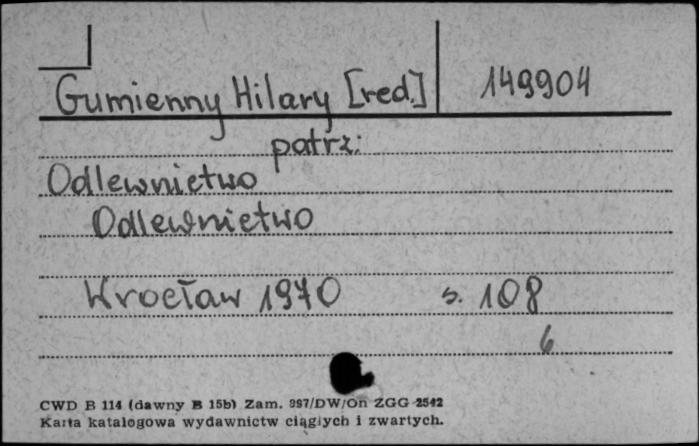 Gumienny Hilary [red.] 149904
patrz:
Odlewnictwo
Odlewnictwo
Wrocław 1970 s. 108
6
CWD B 114 (dawny B 15b) Zam. 987/DW/On ZGG 2542
Karta katalogowa wydawnictw ciągłych i zwartych.